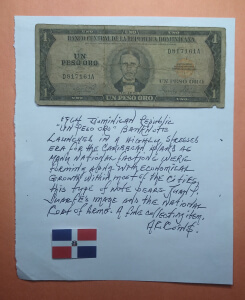 1
BANCO CENTRAL DE LA REPUBLICA DOMINICANA
1
UN
PESO ORO
D917161A
D917161A
UN PESO ORO
1964 DOMINICAN REPUBLIC
"UN PESO ORO" BANKNOTE
LAUNCHED IN A HIGHLY STRESSED
ERA FOR THE CARIBBEAN ISLAND AS
MANY NATIONAL FACTIONS WERE
FORMING ALONG WITH ECONOMICAL
GROWTH WITHIN MOST OF THE CITIES.
THIS TYPE OF NOTE BEARS JUAN P.
DUARTE'S IMAGE AND THE NATIONAL
COAT OF ARMS. A FINE COLLECTING ITEM.